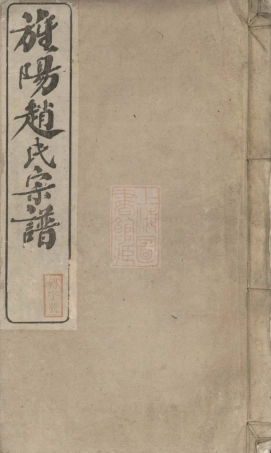 旌陽趙氏宗譜
上海圖書館藏